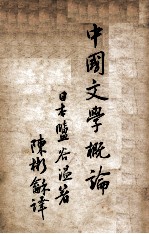 中國文學概論
日本鹽谷溫著
陳彬龢譯